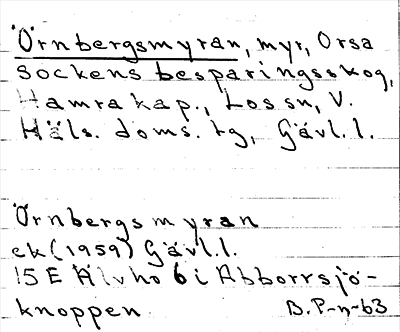 Örnbergsmyran, myr, Orsa
sockens besparingsskog,
Hamra kap., Los sn, V.
Häls. doms. tg, Gävl. l.
Örnbergsmyran
ek (1959) Gävl. l.
15 E Älvho 6 i Abborrsjö-
knoppen B. P-n-63